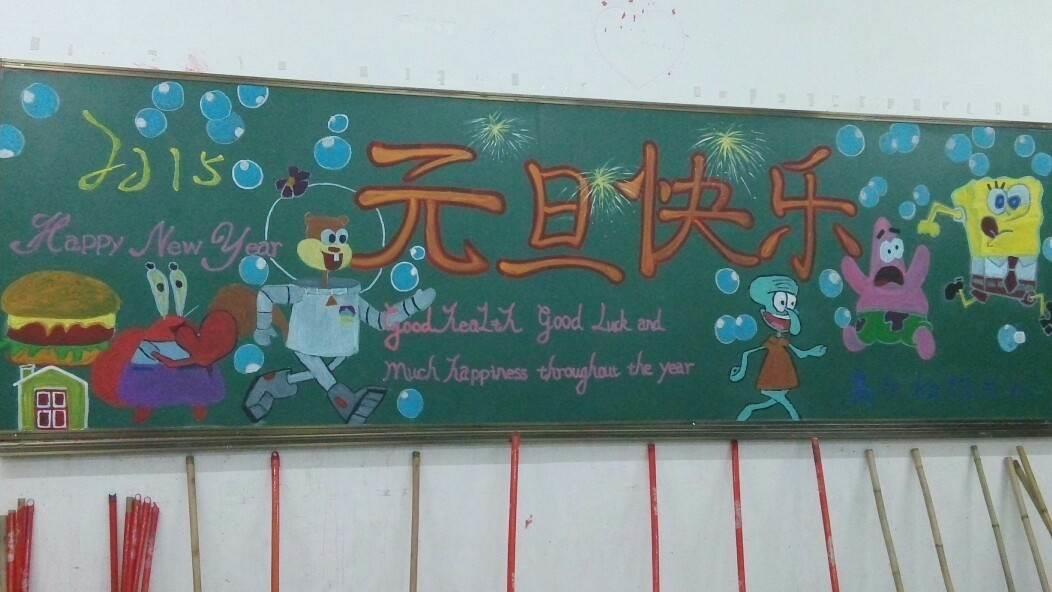 2015
元旦快乐
Happy New Year
Good health Good Luck and
Much happiness throughout the year